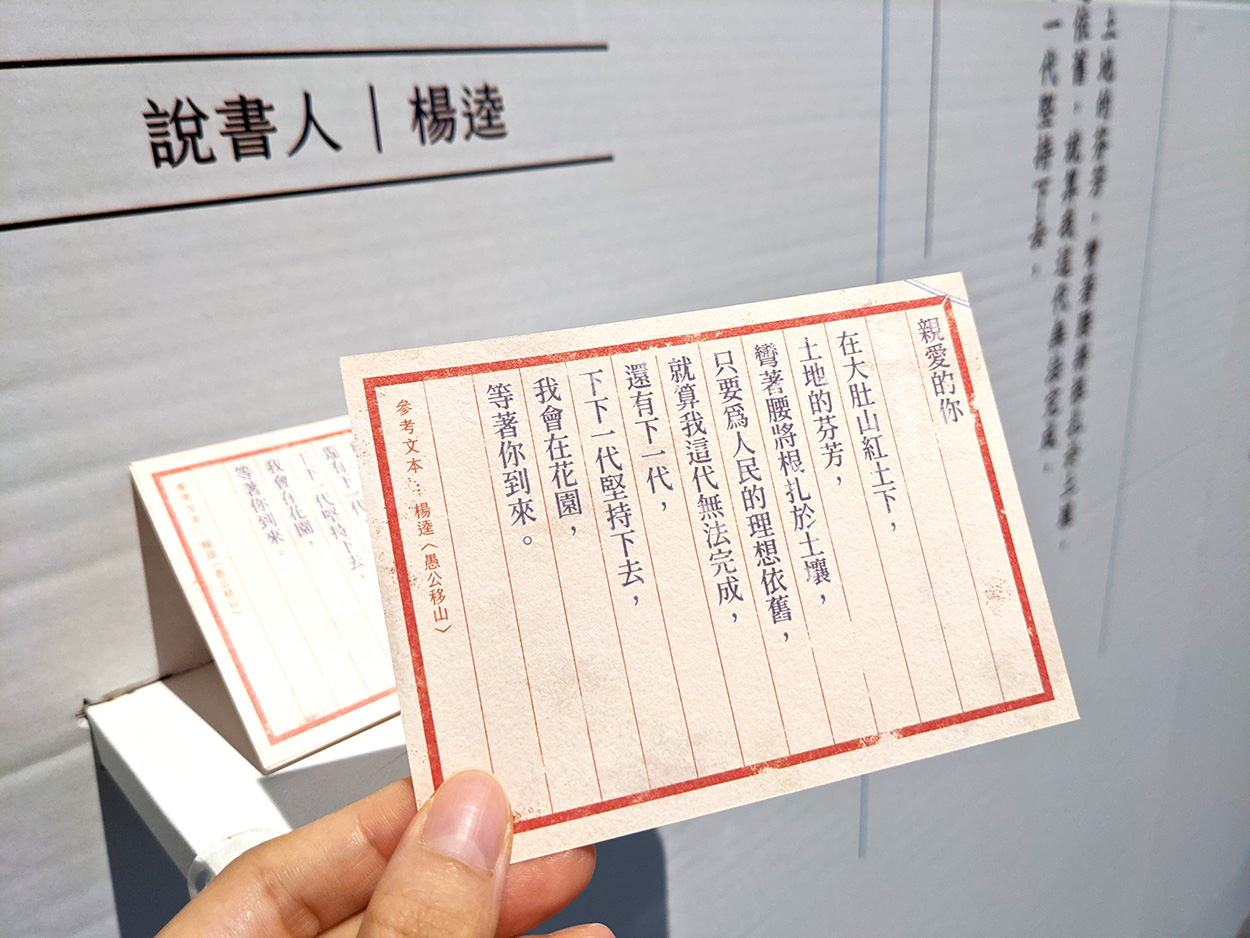 說書人｜楊逵
土地的芬芳，彎著腰將根扎於土壤，
依舊，就算我這代無法完成，
一代堅持下去。
親愛的你
在大肚山紅土下，
土地的芬芳，
彎著腰將根扎於土壤，
只要爲人民的理想依舊，
就算我這代無法完成，
還有下一代，
下下一代堅持下去，
我會在花園，
等著你到來。
參考文本：楊逵〈愚公移山〉
還有下一代，
下下一代堅持下去，
我會在花園，
等著你到來。
參考文本：楊逵〈愚公移山〉